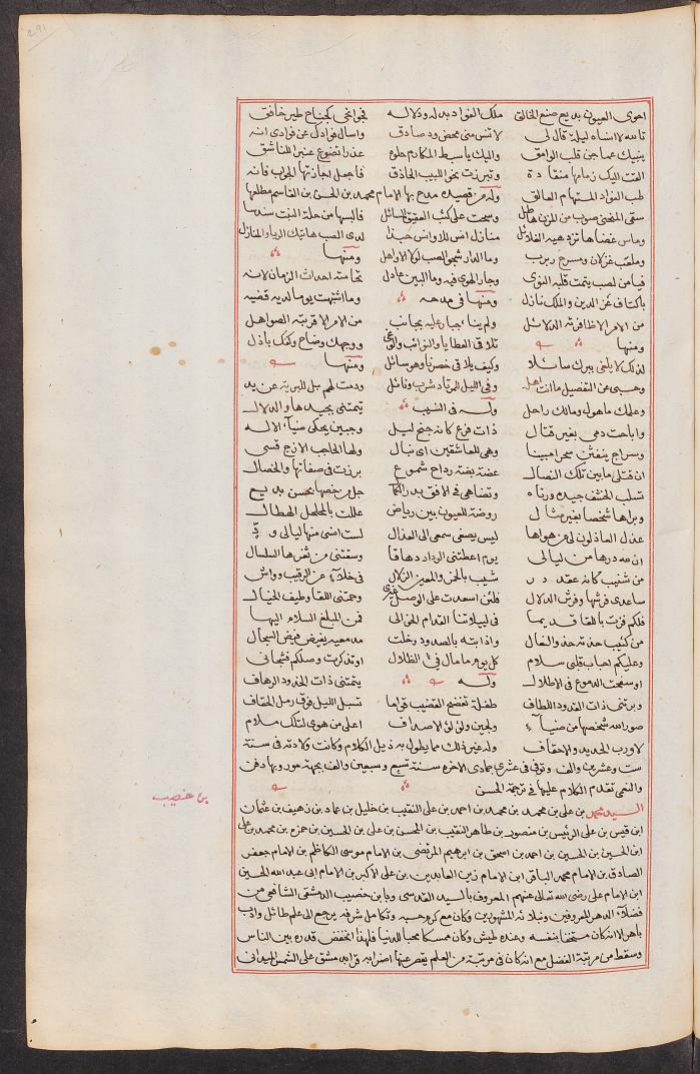 احوى العيون بديع صنع الخالق ملك الفواد بدله ودلاله فجوانحى كجناح طير خافق
تالله لا انساه ليلة قال لى لا تنس منى محض ود صادق واسال فوادك عن فوادى انه
ينبيك عما جن قلب الوامق واليك ياسبط المكارم حلوه عذرا تضوع عنبرا للناشق
القت اليك زمامها منقادة وتبرزت نحو اللبيب الحاذق فاجعل اجازتها الجواب فانه
طب الفواد المستهام العالق وله من قصيده مدح بها الامام محمد بن الحسن بن القاسم مطلعها
سقى المغنى صوب من المزن هاطل وسحت على كثب العقيق السائل فالبسها من حلة النبت سندسا
وماس غضاها تزدهيه الغلائل منازل انس للاوانس حبذا لدى الصب هاتيك الربا والمنازل
وملعب غزلان ومسرح ربرب وما الدار شجو الصب لولا الاواهل ومنها
فيا من لصب يتمت قلبه النوى وجار الهوى فيه وما البين عادل تحامته احداث الزمان لانه
باكناف عز الدين والملك نازل ومنها فى مدحه وما اشتهت يوما لديه قضيه
من الامر الا ظافرته الدلائل ولم ينا جبار عليه بجانب من الامر الا قربته الصواهل
ومنها تلاقى العطايا والنوائب والوغى ووجهك وضاح وكفك باذل
لذلك لا يلغى ببرك سائلا وكيف يلاقى خصرنا وهو سائل ومنها
وحسبى عن التفصيل ما انت اهله وفى الليل المرتاد شرب ونائل ودمت لهم بل للبرية عن يد
وعلمك ماهول ومالك راحل وله فى النسيب يتمتنى بجيدها والدلال
واباحت دمى بغير قتال ذات فرع كانه جنح ليل وجبين يحكى ضياء الاله
وسراج ينفثن سحرا مبينا وهى للعاشقين اى نبال ولها الحاجب الازج قسى
ان قتلى مابين تلك النصال غضة بضة رداح شموع برزت فى صفاتها والخصال
تسلب الخشف جيده ورناه وتضاهى فى الافق بدر الكما جل من خصها بحسن بديع
وبراها شخصا بغير مثال روضة للعيون بين رياض عللت بالحلحل الهطال
عذل العاذلون لى من هواها ليس يصغى سمعى الى العذال لست انسى منها ليالى ود
ان لله درها من ليالى يوم اعطتنى الوداد دهاقا وسقتنى من ثغرها السلسال
من شنيب كانه عقد در شيب بالخمر والمعين الزلال فى خلاء عن الرقيب وواش
ساعدى فرشها وفرش الدلال فلئن اسعدت على الوصل غيرى وحمتنى اللقا وطيف الخيال
فلكم فزت باللقا قديما فى ليلاتنا القدام الخوالى فمن المبلغ السلام اليها
من كثيب حذته حذو النعال واذابته بالصدود وخلت مدمعيه يفيض فيض السجال
وعليكم احباب قلبى سلام كل يوم ما مال فى الظلال او تذكرت وصلكم فشجانى
او سفحت الدموع فى الاطلال وله يتمتنى ذات الخدود الرهاف
وبرتنى ذات القدود اللطاف طفلة تفضح القضيب قواما تسبل الليل فوق رمل الحقاف
صور الله شخصها من ضياء ولجين ولؤلؤ الاصداف اعلى من هوى لتلك ملام
لا ورب الحديد والاحقاف وله غير ذلك مما يطول به ذيل الكلام وكانت ولادته فى سنة
ست وعشرين والف وتوفى فى عشرى جمادى الاخرة سنة تسع وسبعين والف بجهة مور وبها دفن
والنعمى تقدم الكلام عليها فى ترجمة الحسن
بن خصيب
السيد محمد بن على بن محمد بن محمد بن احمد بن على النقيب بن خليل بن عماد بن زهيف بن عثمان
ابن قيس بن على الرئيس بن منصور بن طاهر النقيب بن الحسن بن على بن الحسين بن حمزه بن محمد بن على
ابن الحسين بن الحسين بن احمد بن اسحق بن ابرهيم المرتضى بن الامام موسى الكاظم بن الامام جعفر
الصادق بن الامام محمد الباقر ابن الامام زين العابدين بن على الاكبر بن الامام ابى عبد الله الحسين
ابن الامام على رضى الله تعالى عنهم المعروف بالسيد القدسى وبابن خصيب الدمشقى الشافعى من
فضلاء الدهر المعروفين ونبلائه المشهورين وكان مع كرم حسبه وتكامل شرفه يرجع الى علم طائل وادب
باهر الا انه كان مستخفا بنفسه وعنده طيش وكان ممسكا محبا للدنيا فلهذا انخفض قدره بين الناس
وسقط من مرتبة الفضل مع انه كان فى مرتبة من العلم يقصر عنها اضرابه قرا بدمشق على الشمس الميدانى